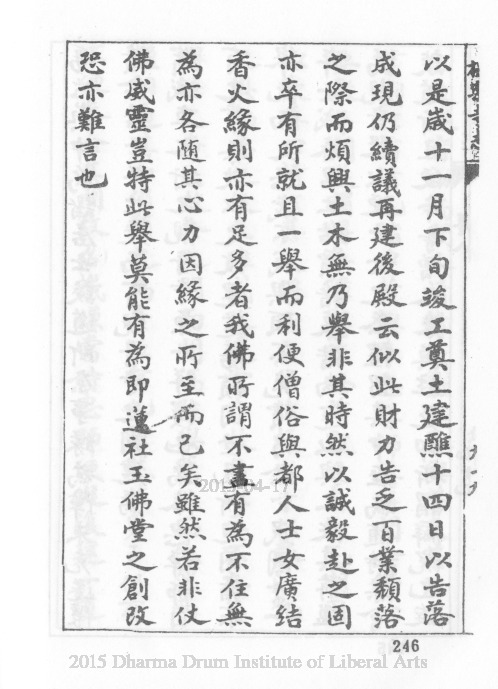 以是歲十一月下旬竣工奠土建醮十四日以告落
成現仍續議再建後殿云似此財力告乏百業頹落
之際而煩興土木無乃舉非其時然以誠毅赴之固
亦卒有所就且一舉而利便僧俗與都人士女廣結
香火緣則亦有足多者我佛所謂不盡有為不住無
為亦各隨其心力因緣之所至而已矣雖然若非仗
佛威靈豈特此舉莫能有為即蓮社玉佛堂之創改
恐亦難言也
2015-04-17
246
2015 Dharma Drum Institute of Liberal Arts